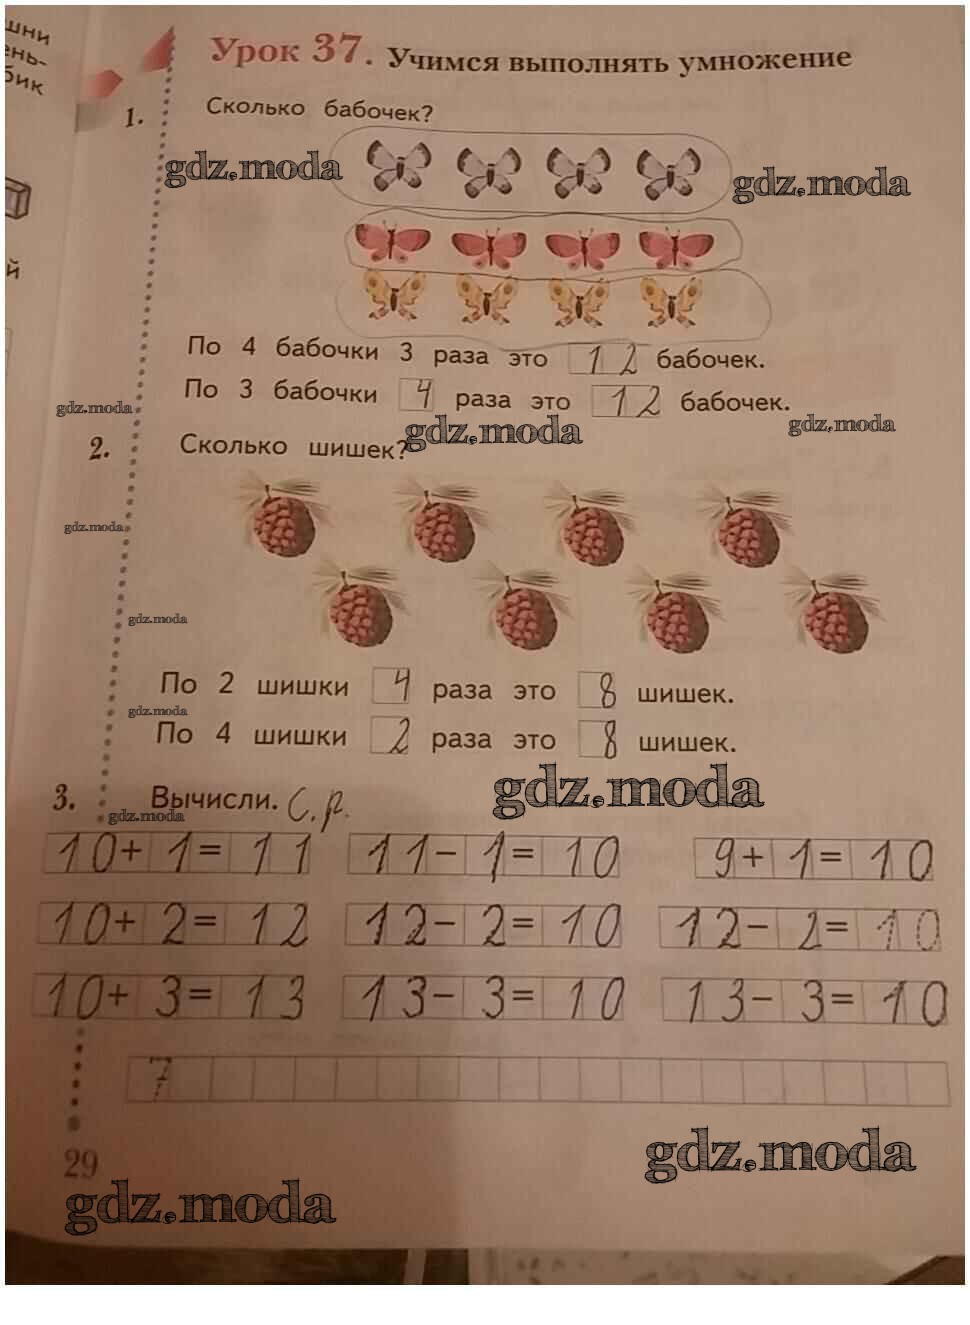 шни
ень-
бик
й
Урок 37. Учимся выполнять умножение
1. Сколько бабочек?
gdz.moda gdz.moda
По 4 бабочки 3 раза это 12 бабочек.
По 3 бабочки 4 раза это 12 бабочек.
gdz.moda gdz.moda gdz.moda
2. Сколько шишек?
gdz.moda
gdz.moda
По 2 шишки 4 раза это 8 шишек.
gdz.moda
По 4 шишки 2 раза это 8 шишек.
gdz.moda
3. Вычисли. С.р.
gdz.moda
10+ 1= 11 11- 1= 10 9+ 1= 10
10+ 2= 12 12- 2= 10 12- 2= 10
10+ 3= 13 13- 3= 10 13- 3= 10
7
gdz.moda
29
gdz.moda